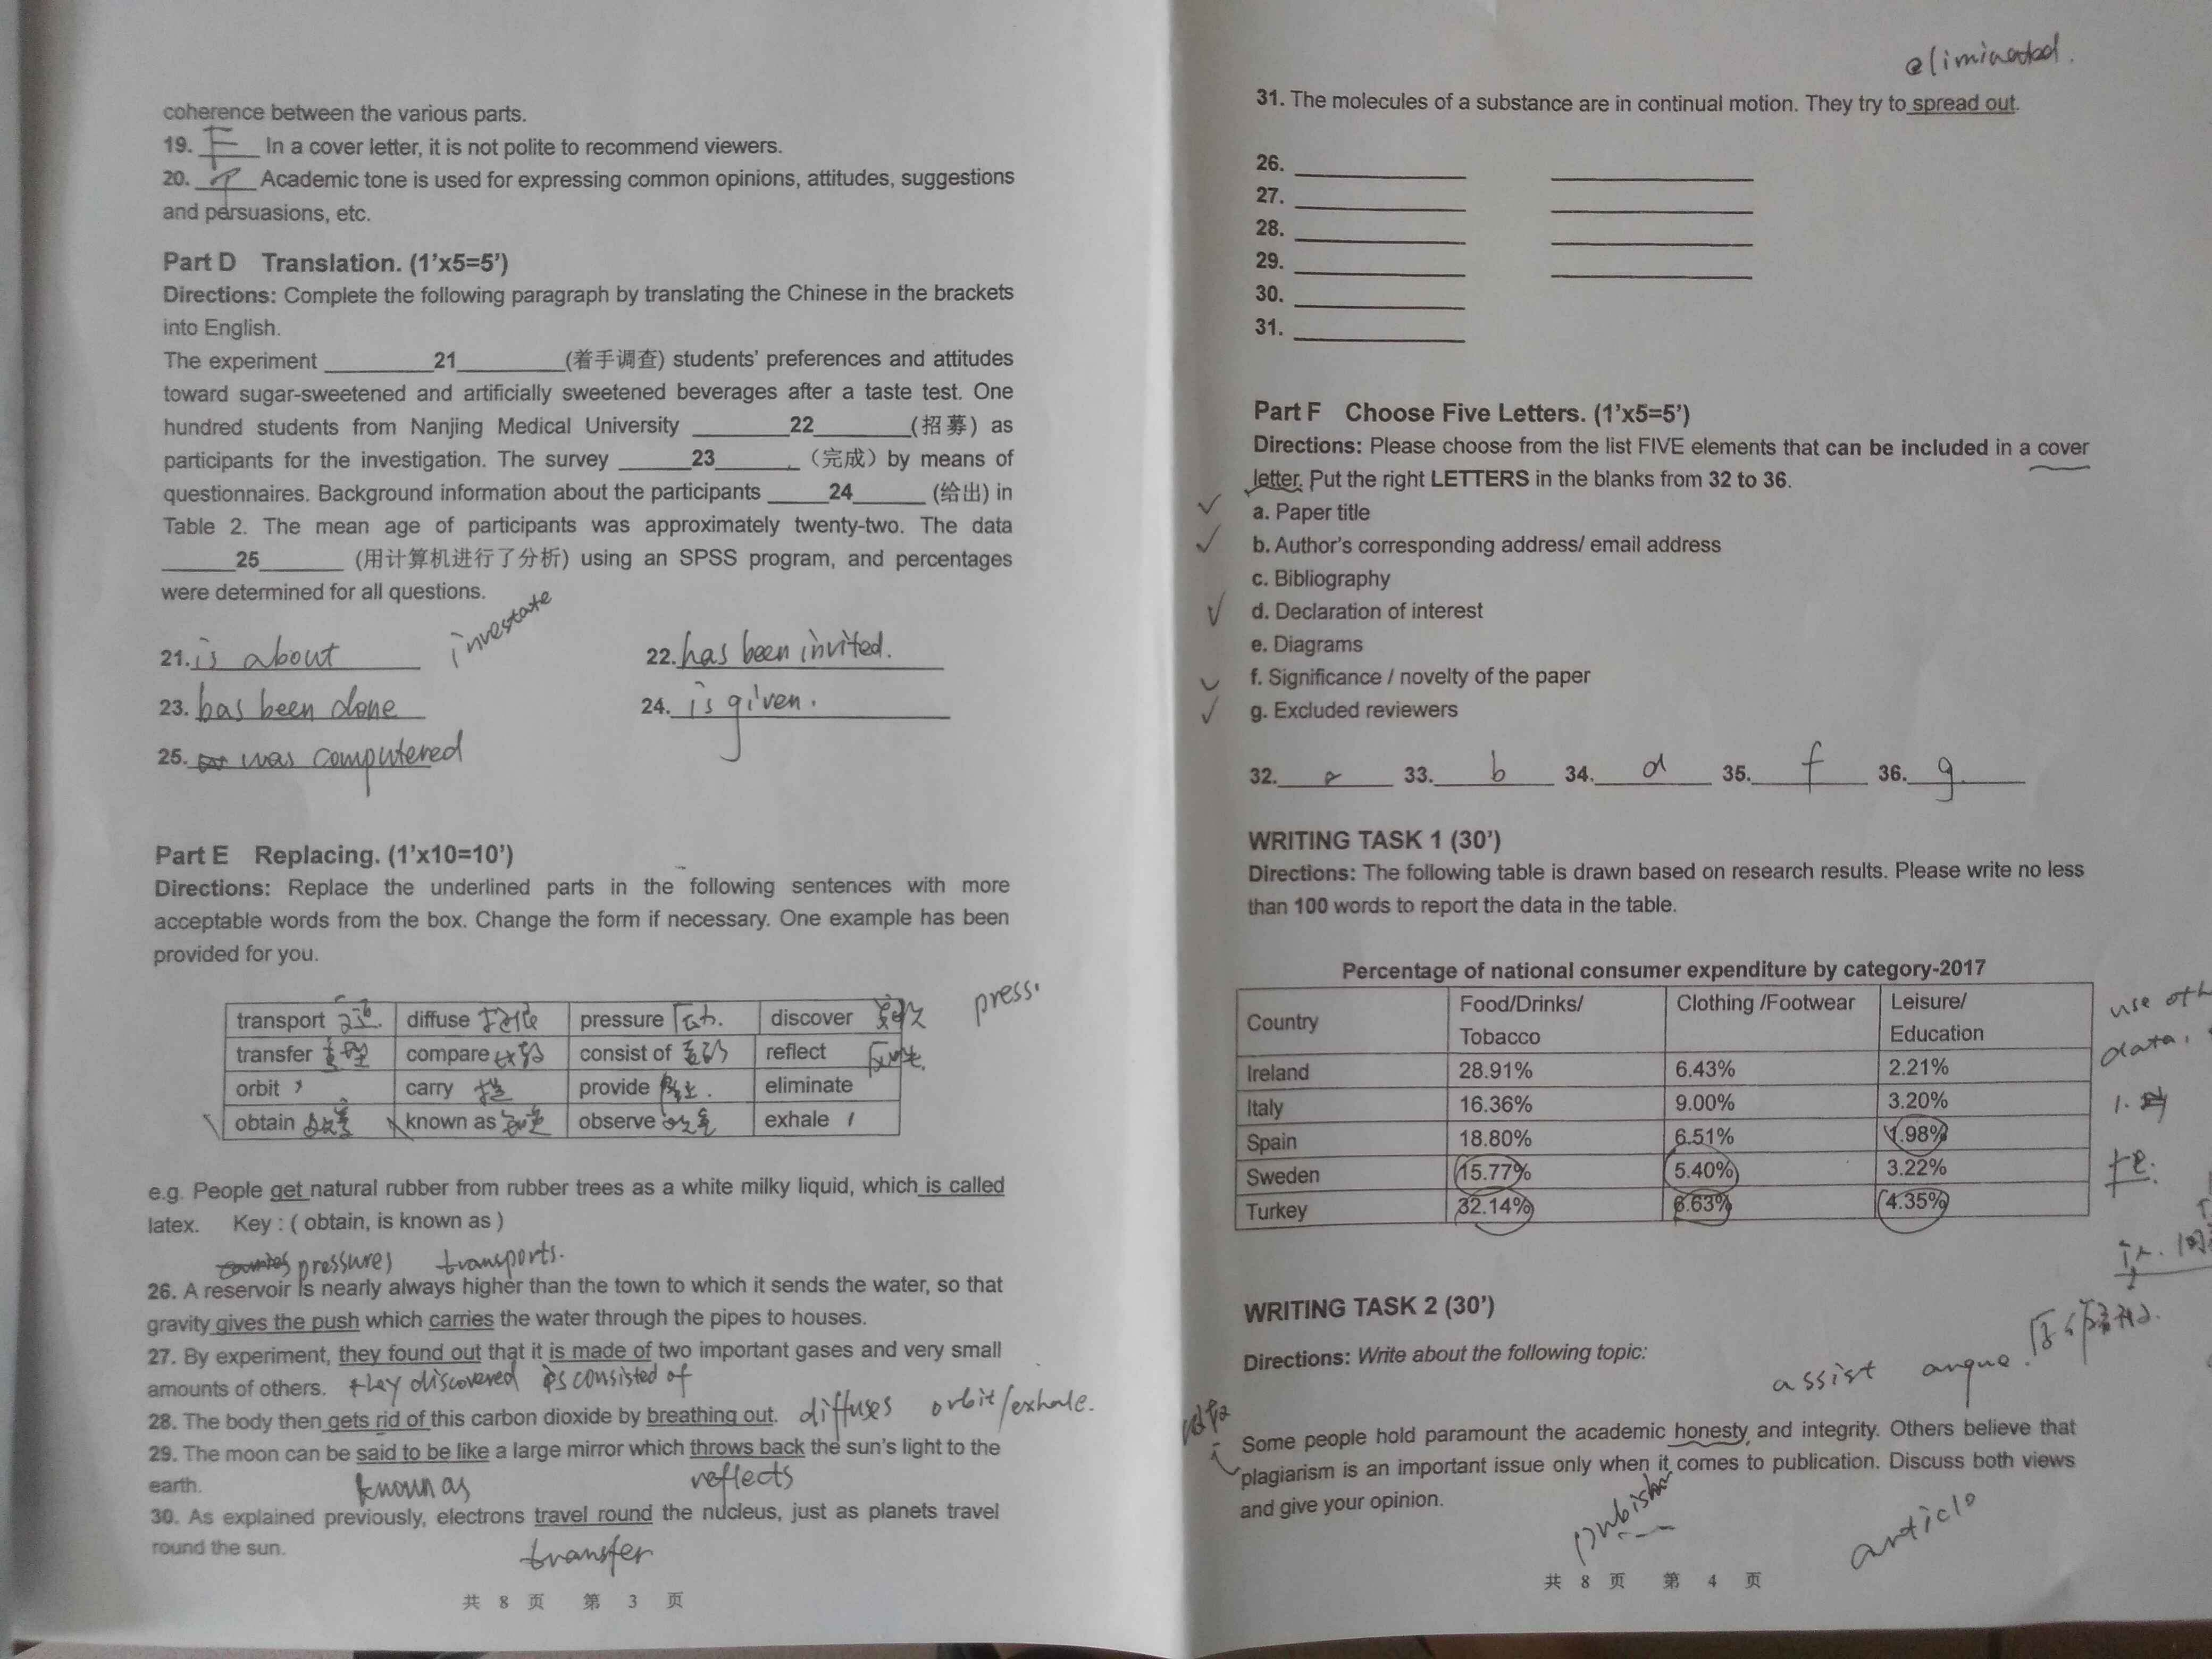 coherence between the various parts.
19. F In a cover letter, it is not polite to recommend viewers.
20. T Academic tone is used for expressing common opinions, attitudes, suggestions
and persuasions, etc.
Part D Translation. (1'x5=5')
Directions: Complete the following paragraph by translating the Chinese in the brackets
into English.
The experiment ________21________(着手调查) students' preferences and attitudes
toward sugar-sweetened and artificially sweetened beverages after a taste test. One
hundred students from Nanjing Medical University _______22_______(招募) as
participants for the investigation. The survey _____23______ （完成）by means of
questionnaires. Background information about the participants _____24______ (给出) in
Table 2. The mean age of participants was approximately twenty-two. The data
______25______ (用计算机进行了分析) using an SPSS program, and percentages
were determined for all questions.
investate
21. is about
22. has been invited.
23. has been done
24. is given.
25. was computered
Part E Replacing. (1'x10=10')
Directions: Replace the underlined parts in the following sentences with more
acceptable words from the box. Change the form if necessary. One example has been
provided for you.
press.
transport diffuse pressure 压力. discover
transfer compare consist of reflect
orbit carry provide eliminate
obtain known as observe exhale
e.g. People get natural rubber from rubber trees as a white milky liquid, which is called
latex. Key : ( obtain, is known as )
pressures transports.
26. A reservoir is nearly always higher than the town to which it sends the water, so that
gravity gives the push which carries the water through the pipes to houses.
27. By experiment, they found out that it is made of two important gases and very small
amounts of others. they discovered is consisted of
28. The body then gets rid of this carbon dioxide by breathing out. diffuses orbit/exhale.
29. The moon can be said to be like a large mirror which throws back the sun's light to the
earth. known as reflects
30. As explained previously, electrons travel round the nucleus, just as planets travel
round the sun. transfer
共 8 页 第 3 页
eliminated.
31. The molecules of a substance are in continual motion. They try to spread out.
26.
27.
28.
29.
30.
31.
Part F Choose Five Letters. (1'x5=5')
Directions: Please choose from the list FIVE elements that can be included in a cover
letter. Put the right LETTERS in the blanks from 32 to 36.
a. Paper title
b. Author's corresponding address/ email address
c. Bibliography
d. Declaration of interest
e. Diagrams
f. Significance / novelty of the paper
g. Excluded reviewers
32. a 33. b 34. d 35. f 36. g
WRITING TASK 1 (30')
Directions: The following table is drawn based on research results. Please write no less
than 100 words to report the data in the table.
Percentage of national consumer expenditure by category-2017
Country Food/Drinks/ Tobacco Clothing /Footwear Leisure/ Education
Ireland 28.91% 6.43% 2.21%
Italy 16.36% 9.00% 3.20%
Spain 18.80% 6.51% 1.98%
Sweden 15.77% 5.40% 3.22%
Turkey 32.14% 6.63% 4.35%
use oth
data.
WRITING TASK 2 (30')
Directions: Write about the following topic:
assist argue.
Some people hold paramount the academic honesty and integrity. Others believe that
plagiarism is an important issue only when it comes to publication. Discuss both views
and give your opinion.
article
共 8 页 第 4 页